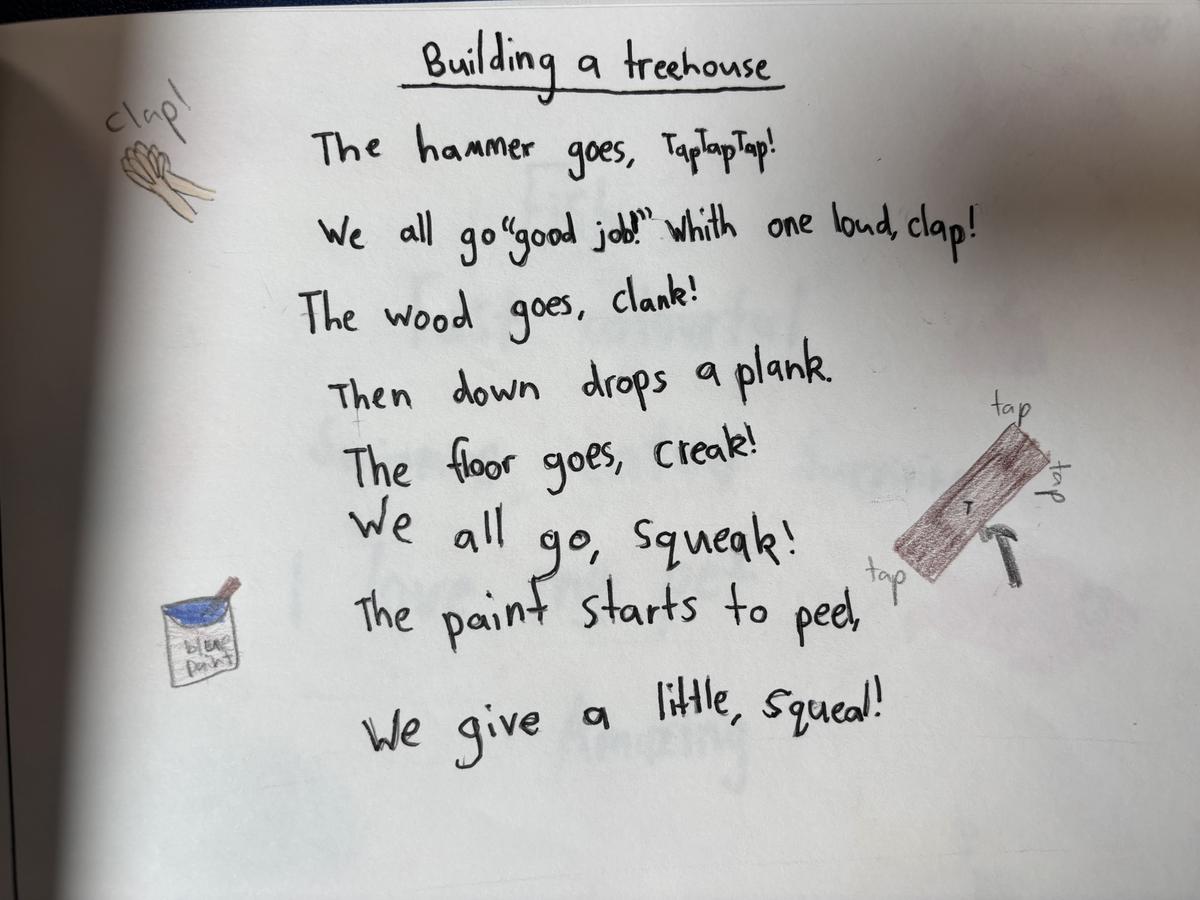 Building a treehouse
clap!
The hammer goes, TapTapTap!
We all go "good job!" Whith one loud, clap!
The wood goes, clank!
Then down drops a plank.
The floor goes, creak!
We all go, squeak!
The paint starts to peel,
We give a little, squeal!
tap
tap
tap
blue
paint